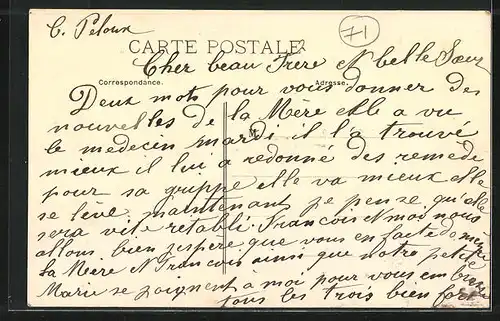 C. Peloux
71
CARTE POSTALE
Cher beau Frere et belle Sœur
Correspondance. Adresse.
Deux mots pour vous donner des
nouvelles de la Mère elle a vu
le medecin mardi il l'a trouvé
mieux il lui a redonné des remède
pour sa gruppe elle va mieux elle
se lève maintenant je pense qu'elle
sera vite retabli Francois et moi nous
allons bien j'espère que vous en faite de même
La Mère et Francois ainsi que notre petite
Marie se joignent à moi pour vous embrasser
tous les trois bien fort